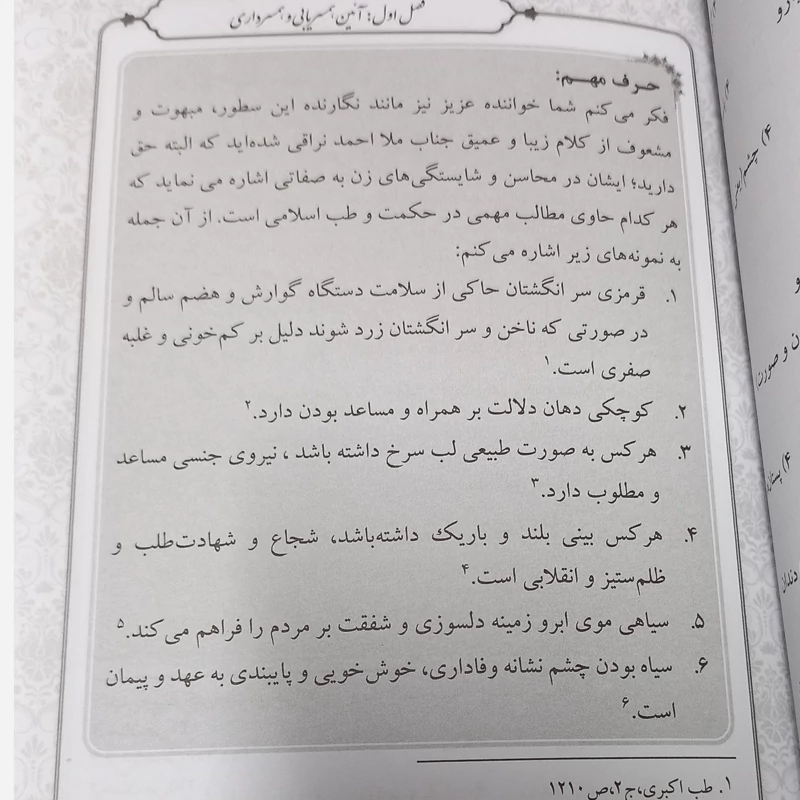 فصل اول: آئین همسریابی و همسرداری
حرف مهم:
فکر می‌کنم شما خواننده عزیز نیز مانند نگارنده این سطور، مبهوت و
مشعوف از کلام زیبا و عمیق جناب ملا احمد نراقی شده‌اید که البته حق
دارید؛ ایشان در محاسن و شایستگی‌های زن به صفاتی اشاره می نماید که
هر کدام حاوی مطالب مهمی در حکمت و طب اسلامی است. از آن جمله
به نمونه‌های زیر اشاره می‌کنم:
۱. قرمزی سر انگشتان حاکی از سلامت دستگاه گوارش و هضم سالم و
در صورتی که ناخن و سر انگشتان زرد شوند دلیل بر کم‌خونی و غلبه
صفری است.۱
۲. کوچکی دهان دلالت بر همراه و مساعد بودن دارد.۲
۳. هرکس به صورت طبیعی لب سرخ داشته باشد ، نیروی جنسی مساعد
و مطلوب دارد.۳
۴. هرکس بینی بلند و باریک داشته‌باشد، شجاع و شهادت‌طلب و
ظلم‌ستیز و انقلابی است.۴
۵. سیاهی موی ابرو زمینه دلسوزی و شفقت بر مردم را فراهم می‌کند.۵
۶. سیاه بودن چشم نشانه وفاداری، خوش‌خویی و پایبندی به عهد و پیمان
است.۶
۱. طب اکبری،ج۲،ص۱۲۱۰
۴) چشم
ن و صورت)
۴) پستان
دندان